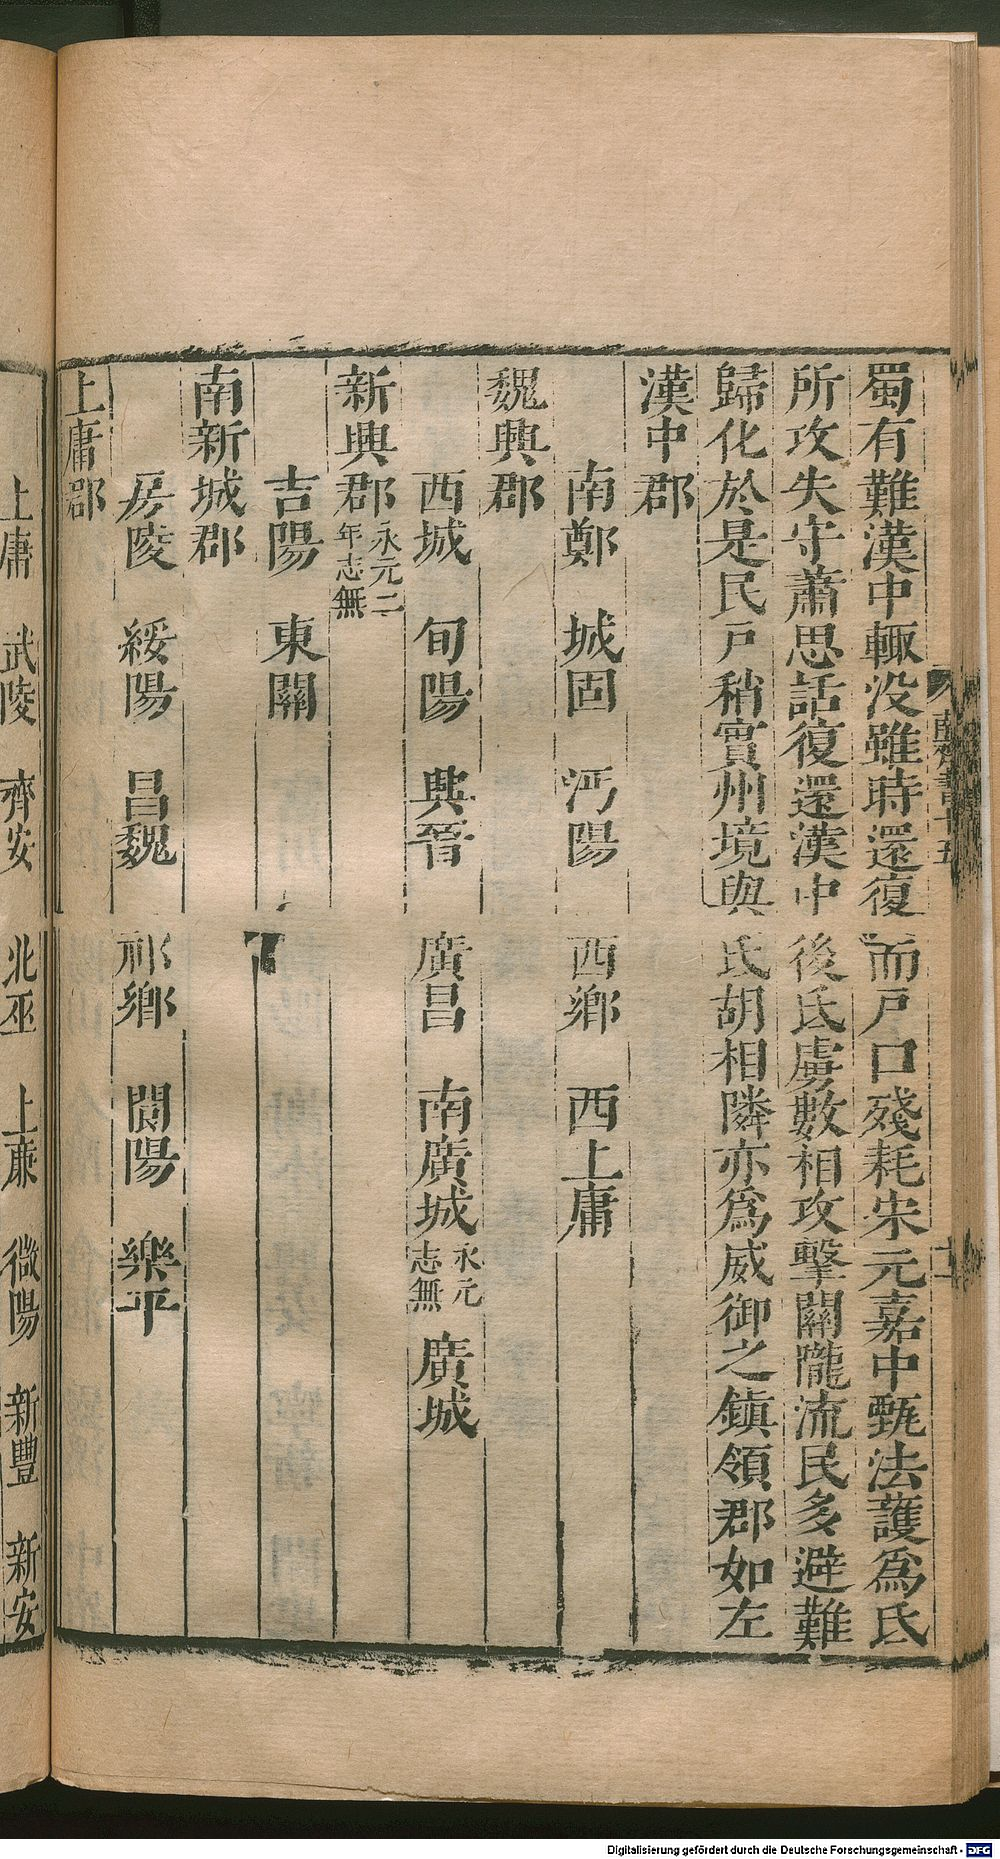 蜀有難漢中輒没雖時還復而戸口殘耗宋元嘉中甄法護爲氐
所攻失守蕭思話復還漢中後氐虜數相攻擊關隴流民多避難
歸化於是民戸稍實州境與氐胡相隣亦爲威御之鎮領郡如左
漢中郡
南鄭 城固 沔陽 西鄉 西上庸
魏興郡
西城 旬陽 興晉 廣昌 南廣城 永元志無 廣城
新興郡 永元二年志無
吉陽 東關
南新城郡
房陵 綏陽 昌魏 祁鄉 閬陽 樂平
上庸郡
上庸 武陵 齊安 北巫 上庸 微陽 新豐 新安
南齊書十五
Digitalisierung gefördert durch die Deutsche Forschungsgemeinschaft - DFG